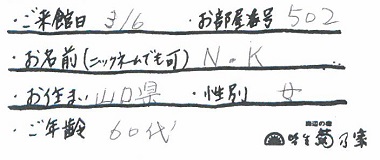 ・ご来館日 3/6 ・お部屋番号 502
・お名前(ニックネームでも可) N.K
・お住まい 山口県 ・性別 女
・ご年齢 60代
海辺の宿
味生菊乃家